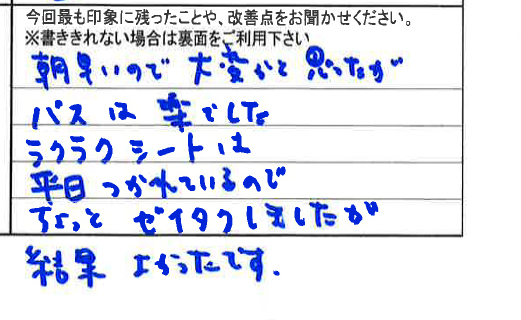 今回最も印象に残ったことや、改善点をお聞かせください。
※書ききれない場合は裏面をご利用下さい
朝早いので 大変かと思ったが
バスは 楽でした
ラクラクシートは
平日 つかれているので
ちょっと ゼイタクしましたが
結果 よかったです.